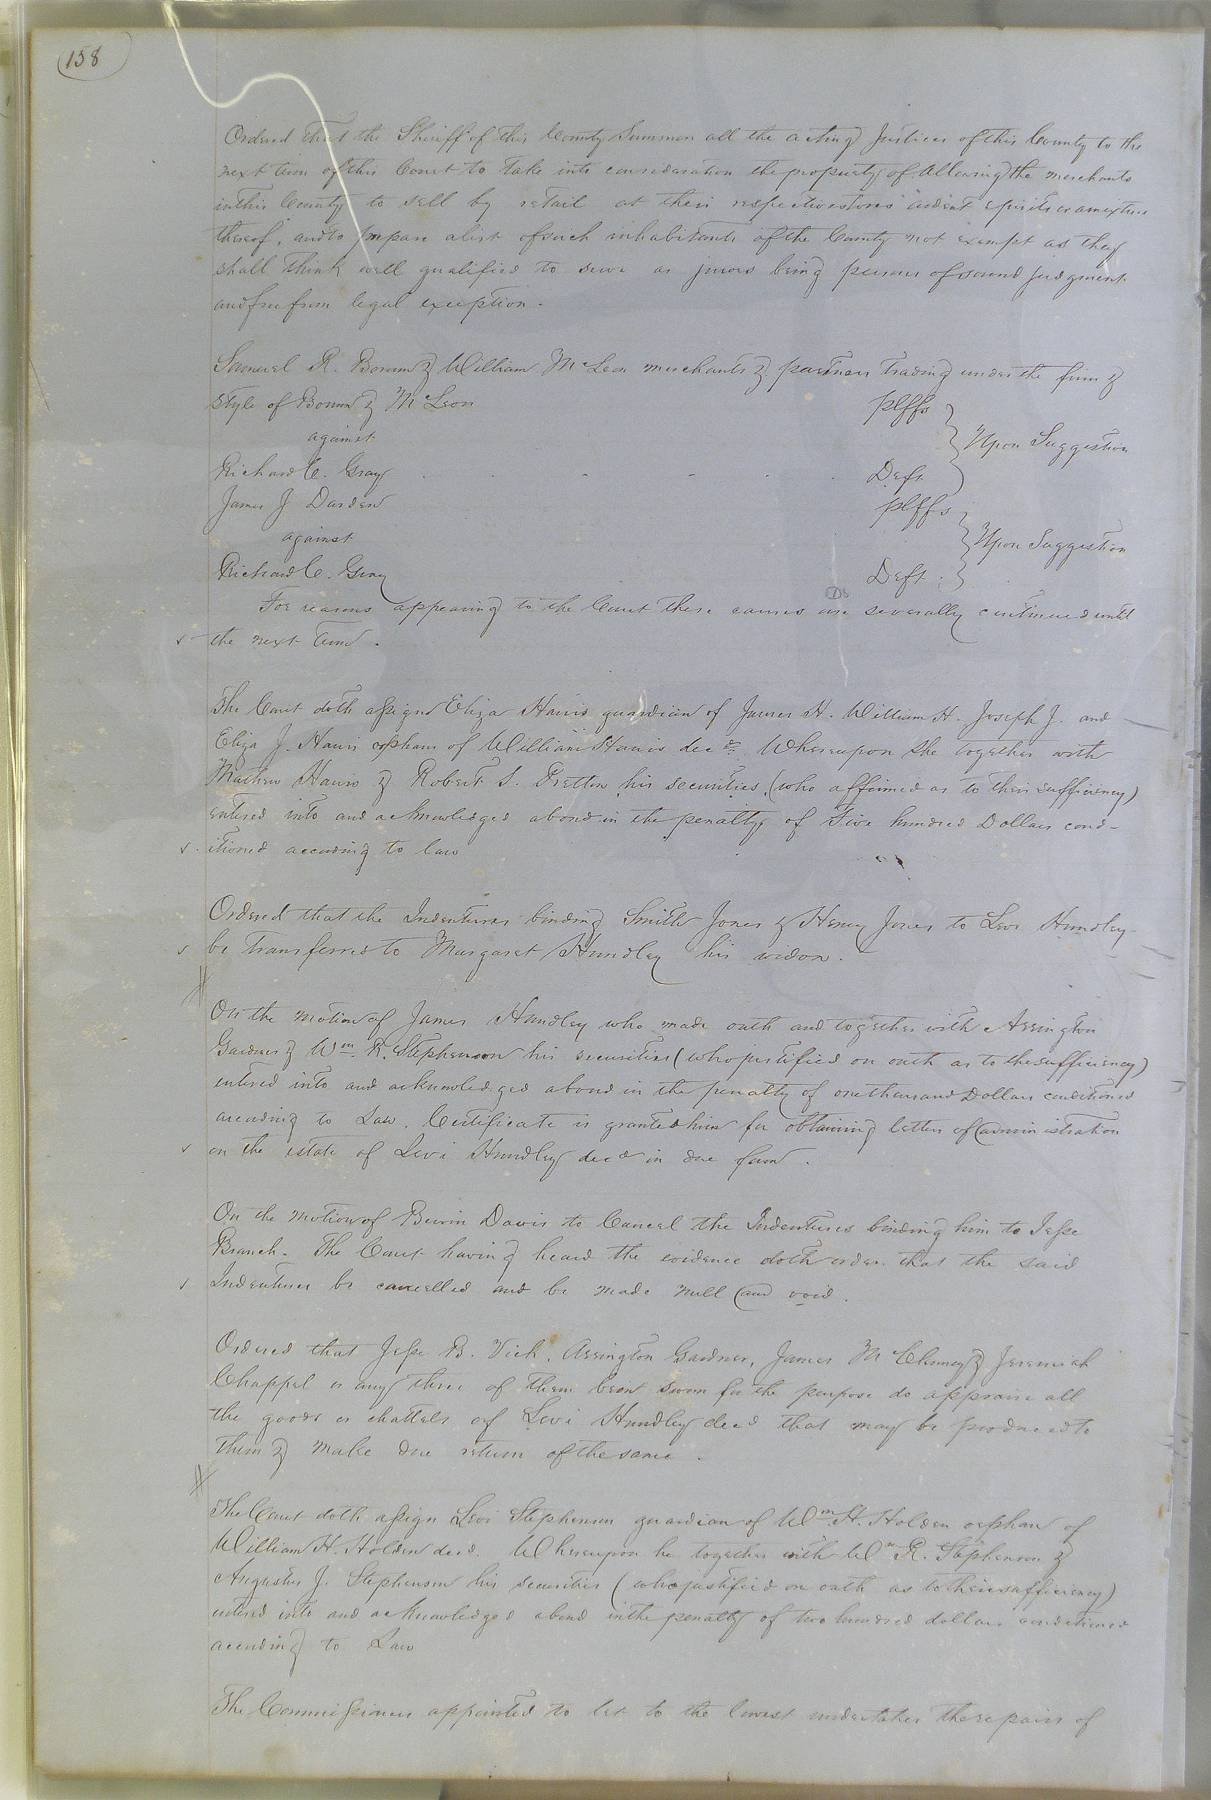 158
Ordered that the Sheriff of this County Summon all the acting Justices of this County to the
next term of this Court to take into consideration the propriety of allowing the merchants
in this County to sell by retail at their respective stores ardent spirits or a mixture
thereof, and to prepare a list of such inhabitants of the County not exempt as they
shall think well qualified to serve as jurors being persons of sound judgment
and free from legal exception.
Samuel R. Borum & William McLeon merchants & partners trading under the firm &
style of Borum & McLeon plffs
against } Upon Suggestion
Richard C. Gray Deft.
James J Darden plffs
against } Upon Suggestion
Richard C. Gray Deft.
For reasons appearing to the Court these causes are severally continued until
the next Term.
The Court doth assign Eliza Harris guardian of James H. William H. Joseph J. and
Eliza J. Harris orphans of William Harris decd. Whereupon she together with
Mathew Harris & Robert S. his securities, (who affirmed as to their sufficiency)
entered into and acknowledged a bond in the penalty of Five hundred Dollars cond-
itioned according to law
Ordered that the Indentures binding Smith Jones & Henry Jones to Levi Hundley
be transferred to Margaret Hundley his widow.
On the motion of James Hundley who made oath and together with Arrington
Gardner & Wm. R. Stephenson his securities (who justified on oath as to the sufficiency)
entered into and acknowledged a bond in the penalty of one thousand Dollars conditioned
according to Law. Certificate is granted him for obtaining letters of administration
on the estate of Levi Hundley decd in due form.
On the motion of Davis to Cancel the Indentures binding him to Jesse
Branch. The Court having heard the evidence doth order that the said
Indentures be cancelled and be made null and void.
Ordered that Jesse B. Vick, Arrington Gardner, James M Chaney & Jeremiah
Chappel or any three of them being sworn for the purpose do appraise all
the goods or chattels of Levi Hundley decd that may be produced to
them & make due return of the same.
The Court doth assign Levi Stephenson guardian of Wm. H. Holden orphan of
William H. Holden decd. Whereupon he together with Wm R. Stephenson &
Augustus J. Stephenson his securities (who justified on oath as to their sufficiency)
entered into and acknowledged a bond in the penalty of two hundred dollars conditioned
according to Law
The Commissioners appointed to let to the lowest undertaker the repairs of